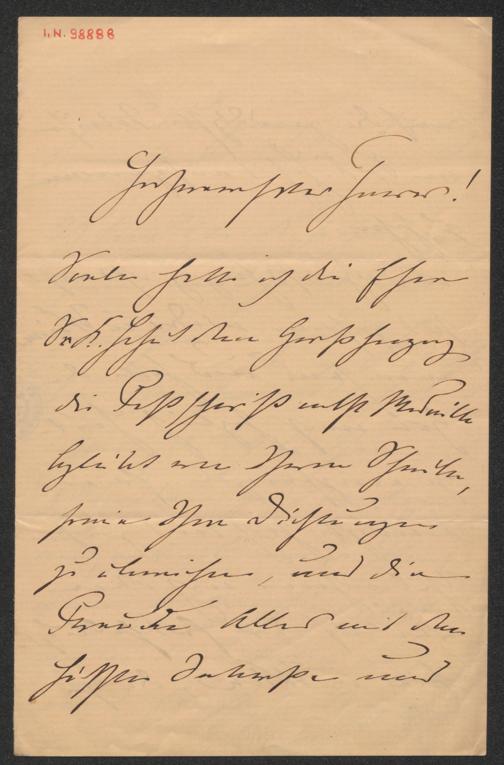 I.N. 98888
Hochverehrter Freund!
Soeben hatte ich die Ehre
Sr. K. Hoheit dem Großherzog
die Festschrift nebst Medaille
von Ihrem Schreiben,
sowie Ihre Dichtungen
zu überreichen, und die
Freude Alles mit dem
höchsten Interesse und